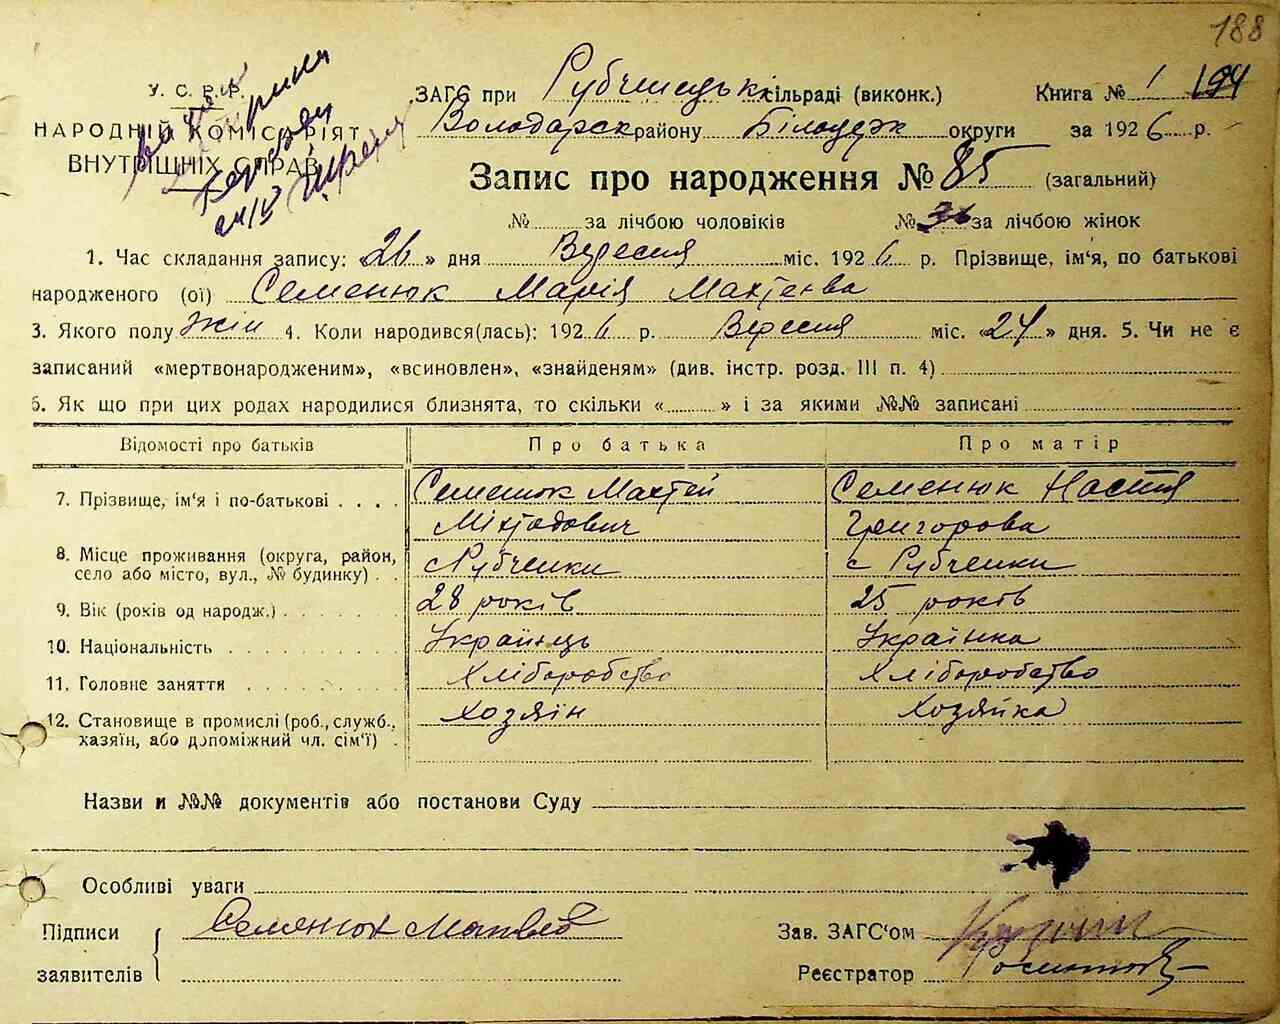 188
У. С. Р. Р.
НАРОДНІЙ КОМІСАРІЯТ
ВНУТРІШНІХ СПРАВ
ЗАГС при Рубченській сільраді (виконк.) Книга № 1 194
Володарск району Білоцерк округи за 1926 р.
Запис про народження № 85 (загальний)
№ за лічбою чоловіків № 36 за лічбою жінок
1. Час складання запису: «26» дня Вересня міс. 1926 р. Прізвище, ім'я, по батькові
народженого (ої) Семенюк Марія Махтеєва
3. Якого полу жін 4. Коли народився(лась): 1926 р. Вересня міс. «24» дня. 5. Чи не є
записаний «мертвонародженим», «всиновлен», «знайденям» (див. інстр. розд. III п. 4)
6. Як що при цих родах народилися близнята, то скільки « » і за якими №№ записані
Відомості про батьків Про батька Про матір
7. Прізвище, ім'я і по-батькові . . . . Семенюк Махтей Семенюк Настя
Григорова
8. Місце проживання (округа, район, село або місто, вул., № будинку) . . с Рубченки с Рубченки
9. Вік (років од народж.) . . . . . . 28 років 25 років
10. Національність . . . . . . . . . Українець Українка
11. Головне заняття . . . . . . . . Хліборобство Хліборобство
12. Становище в промислі (роб., служб., хазяїн, або допоміжний чл. сім'ї) . Хозяїн Хозяйка
Назви и №№ документів або постанови Суду
Особливі уваги
Підписи Семянюк Матвей Зав. ЗАГС'ом
заявителів Реєстратор